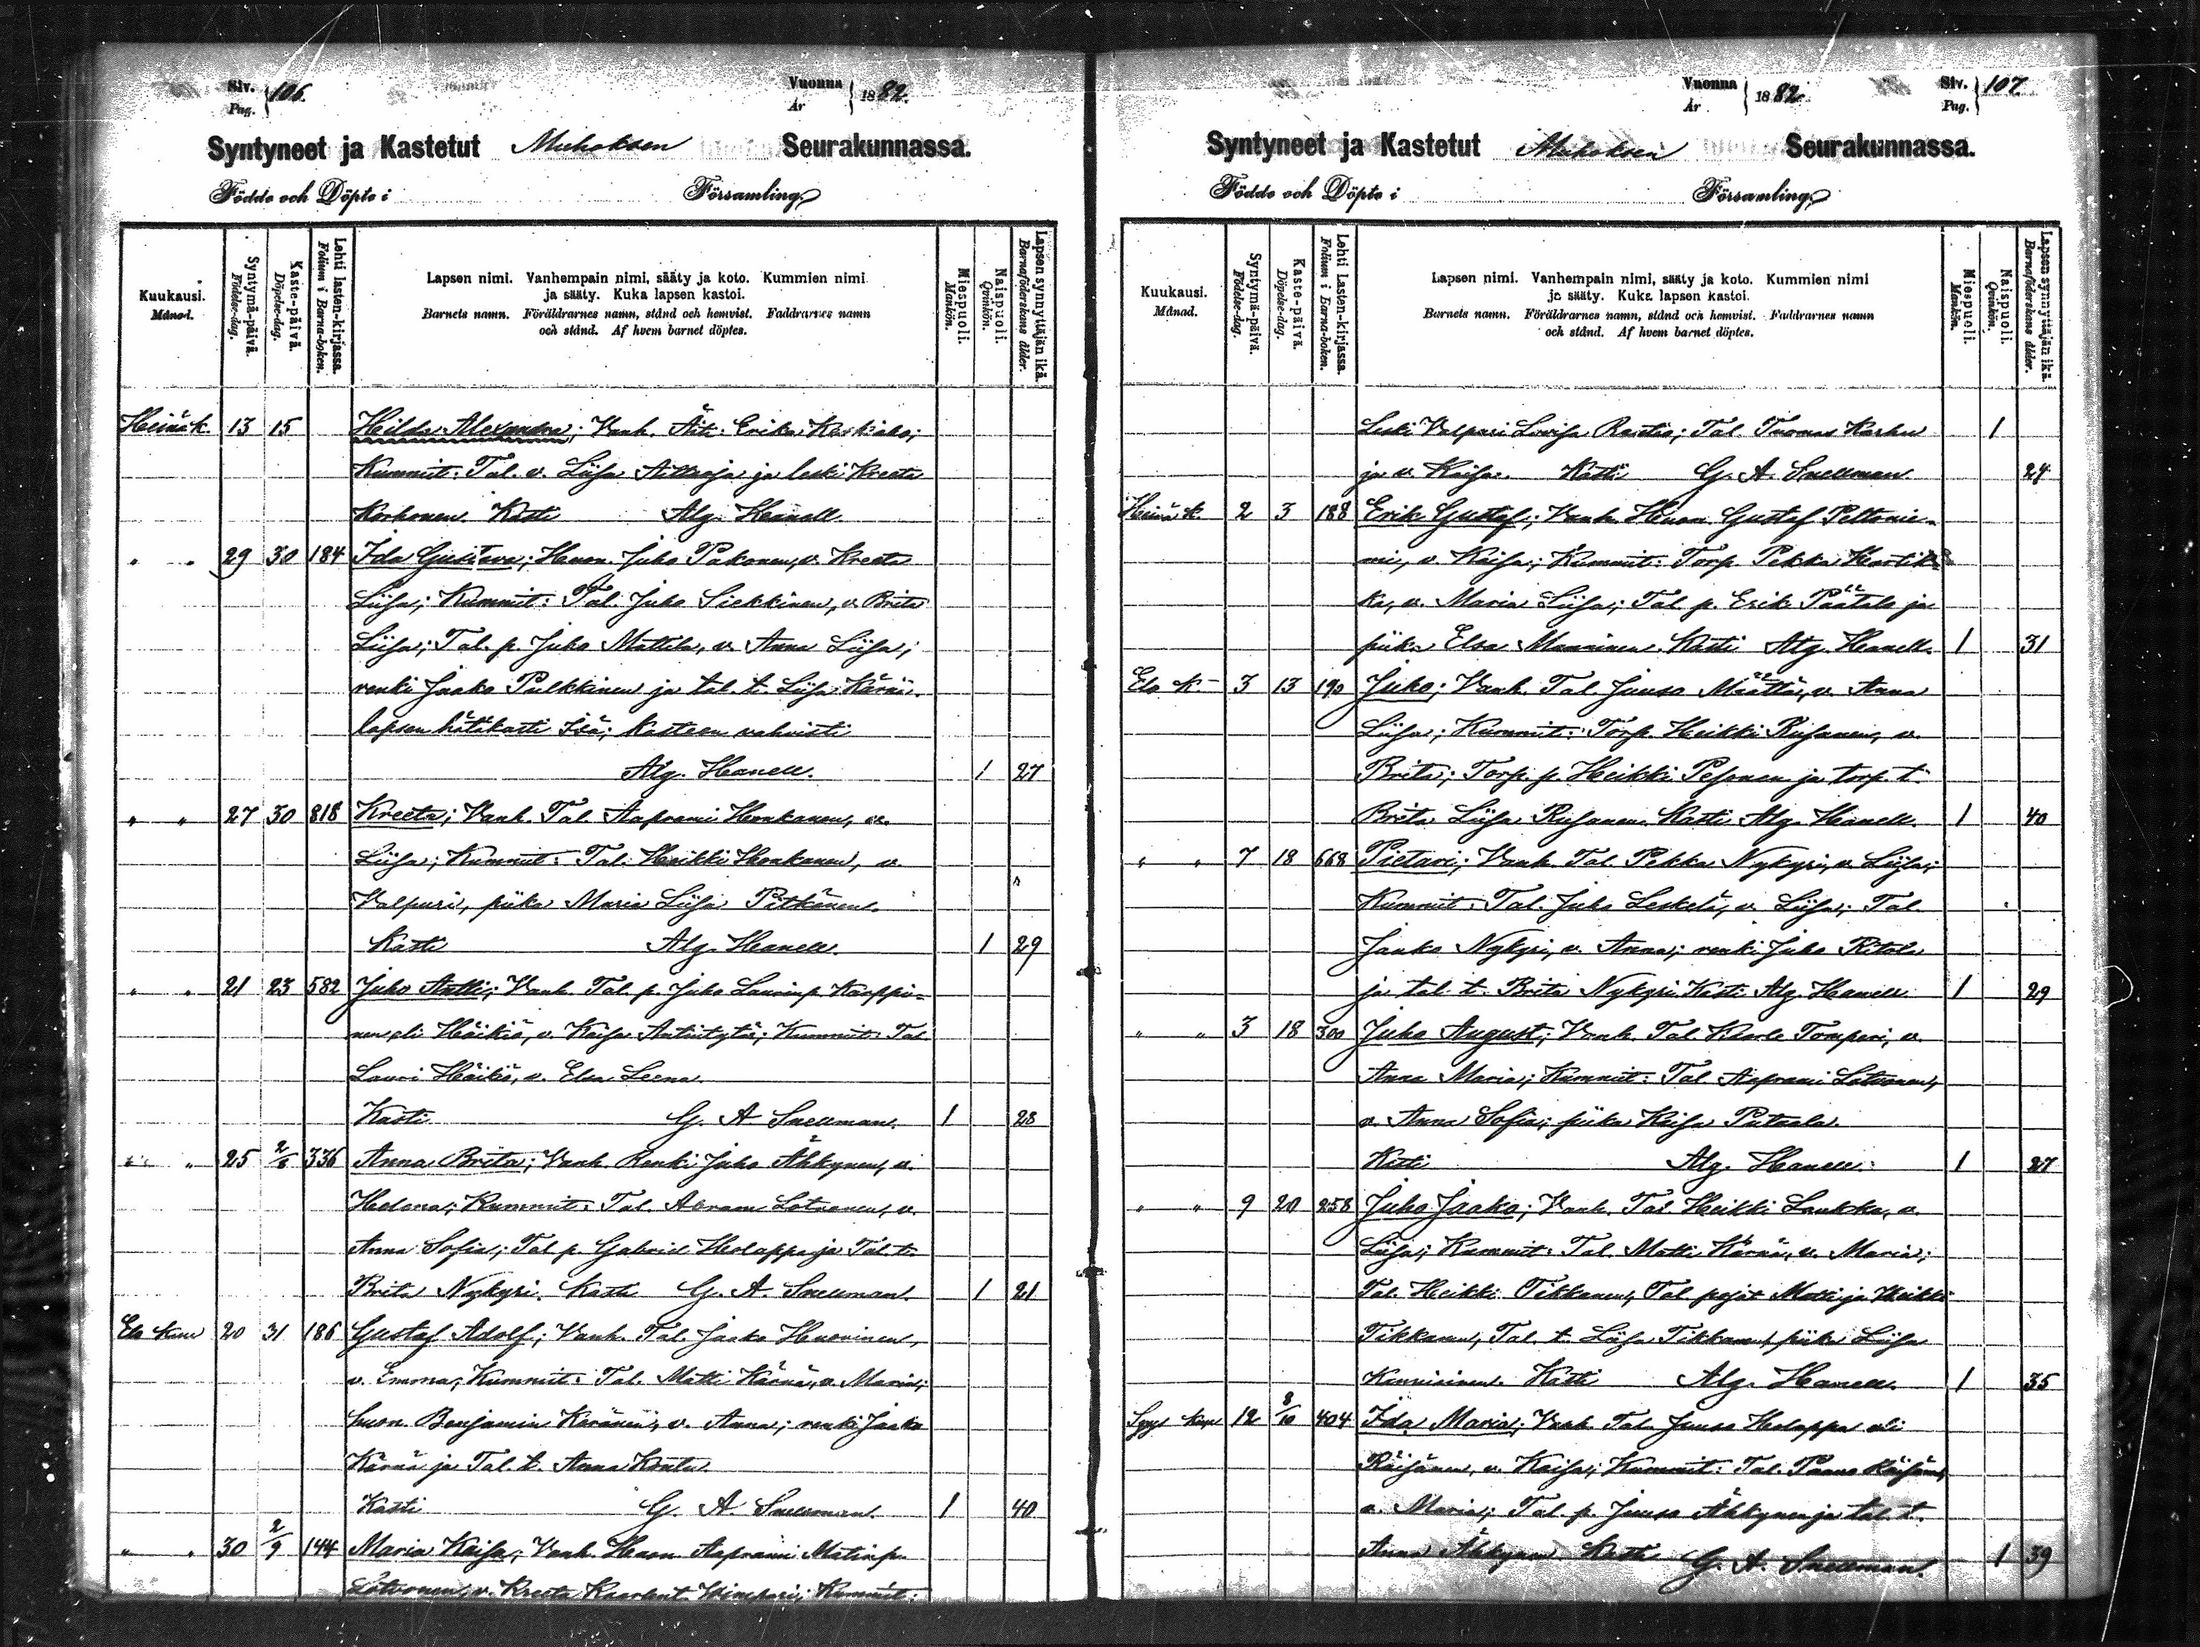 Siv. Pag. 106.
Vuonna År 1882.
Syntyneet ja Kastetut Muhoksen Seurakunnassa.
Födde och Döpte i Församling.
Kuukausi. Månad.
Syntymä-päivä. Födelse-dag.
Kaste-päivä. Döpelse-dag.
Lehti lasten-kirjassa. Folium i Barna-boken.
Lapsen nimi. Vanhempain nimi, sääty ja koto. Kummien nimi
ja sääty. Kuka lapsen kastoi.
Barnets namn. Föräldrarnes namn, stånd och hemvist. Faddrarnes namn
och stånd. Af hvem barnet döptes.
Miespuoli. Mankön.
Naispuoli. Qvinkön.
Lapsen synnyttäjän ikä. Barnaföderskans ålder.
Heinäk. 13 15 Hilda Alexandra; Vanh. Äiti: Erika Keskiaho;
Kummit: Tal. v. Liisa Aittaoja ja leski Kreeta
Korhonen. Kasti Alg. Hanell.
" " 29 30 184 Ida Gustava; Huon. Juho Pakonen, v. Kreeta
Liisa; Kummit: Tal. Juho Siekkinen, v. Brita
Liisa; Tal. p. Juho Mattila, v. Anna Liisa;
renki Jaako Pulkkinen ja tal. t. Liisa Kärnä.
lapsen hätäkasti Isä; kasteen vahvisti
Alg. Hanell. 1 27
" " 27 30 818 Kreeta; Vanh. Tal. Aaprami Honkanen, v.
Liisa; Kummit: Tal. Heikki Honkanen, v.
Valpuri, piika Maria Liisa Pitkänen.
Kasti Alg. Hanell. 1 29
" " 21 23 582 Juho Antti; Vanh. Tal. p. Juho Laurinp. Karppi-
nen eli Häikiö, v. Kaisa Antintytär; Kummit: Tal.
Lauri Häikiö, v. Elsa Leena.
Kasti G. A. Snellman. 1 28
" " 25 2/8 336 Anna Brita; Vanh. Renki Juho Ähkynen, v.
Helena; Kummit: Tal. Abram Lotvonen, v.
Anna Sofia; Tal. p. Gabriel Holappa ja Tal. t.
Brita Nykyri. Kasti G. A. Snellman. 1 21
Elo kuu 20 31 186 Gustaf Adolf; Vanh. Tal. Jaako Huovinen,
v. Emma; Kummit: Tal. Matti Kärnä, v. Maria;
huon. Benjamin Keränen, v. Anna; renki Jaako
Kärnä ja Tal. t. Anna Kontu.
Kasti G. A. Snellman. 1 40
" " 30 2/9 144 Maria Kaisa; Vanh. Huon. Aaprami Matinp.
Lotvonen, v. Kreeta Kaarlent. Kummit:
Siv. Pag. 107.
Vuonna År 1882.
Syntyneet ja Kastetut Muhoksen Seurakunnassa.
Födde och Döpte i Församling.
Kuukausi. Månad.
Syntymä-päivä. Födelse-dag.
Kaste-päivä. Döpelse-dag.
Lehti Lasten-kirjassa. Folium i Barna-boken.
Lapsen nimi. Vanhempain nimi, sääty ja koto. Kummien nimi
ja sääty. Kuka lapsen kastoi.
Barnets namn. Föräldrarnes namn, stånd och hemvist. Faddrarnes namn
och stånd. Af hvem barnet döptes.
Miespuoli. Mankön.
Naispuoli. Qvinkön.
Lapsen synnyttäjän ikä. Barnaföderskans ålder.
Leski Valpuri Lovisa Rastio; Tal. Tuomas Karhu 1
ja v. Kaisa. Kasti G. A. Snellman. 24
Heinä k. 2 3 188 Erik Gustaf; Vanh. Huon. Gustaf Peltonie-
mi, v. Kaisa; Kummit: Torp. Pekka Hartik-
ka, v. Maria Liisa; Tal. p. Erik Päätalo ja
piika Elsa Manninen. Kasti Alg. Hanell. 1 31
Elo k. 3 13 190 Juho; Vanh. Tal. Juuso Määttä, v. Anna
Liisa; Kummit: Torp. Heikki Rusanen, v.
Brita; Torp. p. Heikki Pesonen ja torp. t.
Brita Liisa Rusanen. Kasti Alg. Hanell. 1 40
" " 7 18 668 Pietari; Vanh. Tal. Pekka Nykyri, v. Liisa;
Kummit: Tal. Juho Leskelä, v. Liisa; Tal.
Jaako Nykyri, v. Anna; renki Juho Ritola
ja tal. t. Brita Nykyri. Kasti Alg. Hanell. 1 29
" " 3 18 300 Juho August; Vanh. Tal. Kaarle Tomperi, v.
Anna Maria; Kummit: Tal. Aaprami Lotvonen,
v. Anna Sofia; piika Kaisa Putaala.
Kasti Alg. Hanell. 1 27
" " 9 20 258 Juho Jaako; Vanh. Tal. Heikki Laukka, v.
Liisa; Kummit: Tal. Matti Kärnä, v. Maria;
Tal. Heikki Tikkanen, Tal. pojat Matti ja Heikki
Tikkanen, Tal. t. Liisa Tikkanen, piika Liisa
Kasti Alg. Hanell. 1 35
Syys kuu 12 8/10 404 Ida Maria; Vanh. Tal. Juuso Holappa eli
Räisänen, v. Kaisa; Kummit: Tal. Paavo Räisänen,
v. Maria; Tal. p. Juuso Ähkynen ja tal. t.
Anna Ähkynen. Kasti G. A. Snellman. 1 39